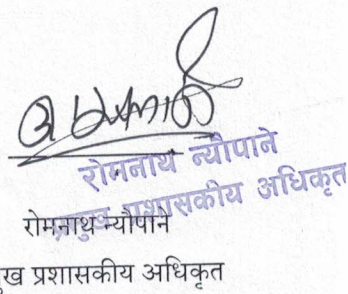 रोमनाथ न्यौपाने
प्रमुख प्रशासकीय अधिकृत
रोमनाथ न्यौपाने
ुख प्रशासकीय अधिकृत